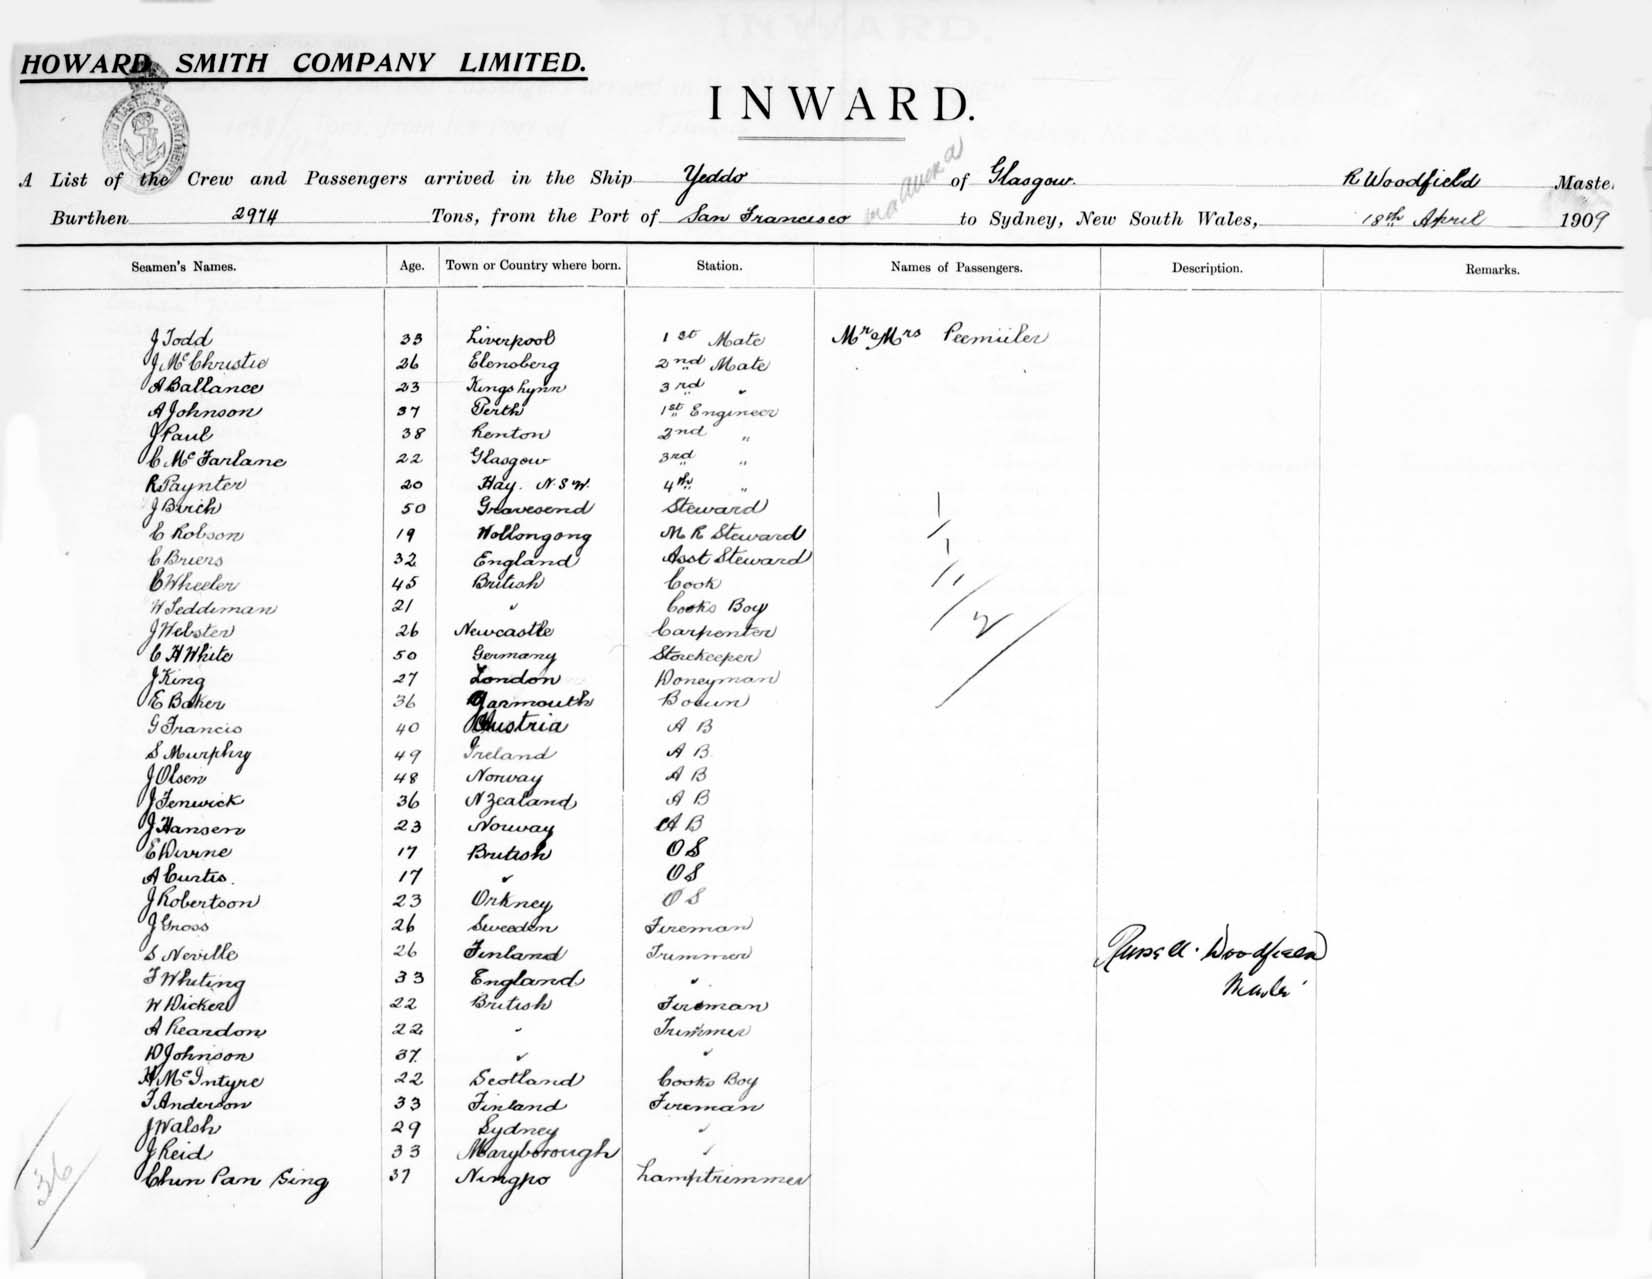 HOWARD SMITH COMPANY LIMITED.
INWARD.
A List of the Crew and Passengers arrived in the Ship Yeddo of Glasgow. R Woodfield Maste
Burthen 2974 Tons, from the Port of San Francisco to Sydney, New South Wales, 18th April 1909
Seamen's Names. Age. Town or Country where born. Station. Names of Passengers. Description. Remarks.
J Todd 33 Liverpool 1st Mate Mr & Mrs Peemüller
J McChristie 26 Elensberg 2nd Mate
A Ballance 23 Kings Lynn 3rd "
A Johnson 37 Perth 1st Engineer
J Paul 38 Renton 2nd "
C McFarlane 22 Glasgow 3rd "
R Paynter 20 Hay. N.S.W. 4th "
J Birch 50 Gravesend Steward
C Robson 19 Wollongong M R Steward
C Briers 32 England Asst Steward
C Wheeler 45 British Cook
W Seddiman 21 " Cooks Boy
J Webster 26 Newcastle Carpenter
C H White 50 Germany Storekeeper
J King 27 London Doneyman
E Baker 36 Yarmouth Bosun
G Francis 40 Austria A B
S Murphy 49 Ireland A B
J Olsen 48 Norway A B
J Fenwick 36 N Zealand A B
J Hansen 23 Norway A B
E Divine 17 British O S
A Curtis. 17 " O S
J Robertson 23 Orkney O S
J Gross 26 Sweeden Fireman
S Neville 26 Finland Trimmer
F Whiting 33 England "
W Dicken 22 British Fireman
A Reardon 22 " Trimmer
D Johnson 37 " "
H McIntyre 22 Scotland Cooks Boy
F Anderson 33 Finland Fireman
J Walsh 29 Sydney "
J Reid 33 Maryborough "
Chun Pan Sing 37 Ningpo Lamptrimmer
Russell Woodfield
Master
36